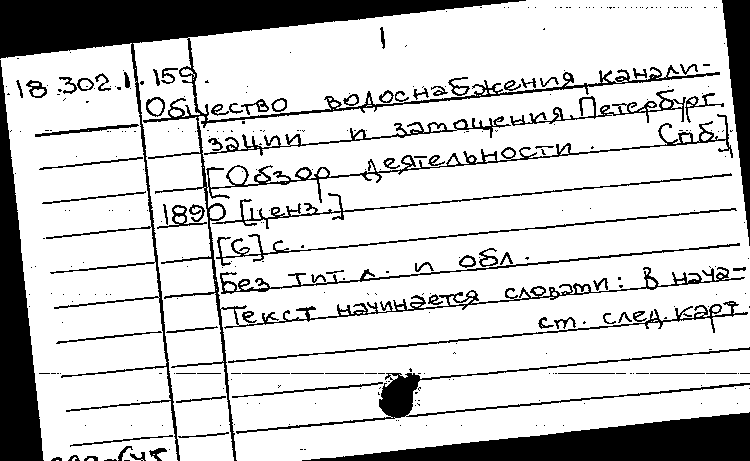 1
18.302.1.159.
Общество водоснабжения, канали-
зации и замощения. Петербург.
[Обзор деятельности. Спб.]
1890 [ценз.]
[6] с.
Без тит. л. и обл.
Текст начинается словами: В нача-
см. след. карт.